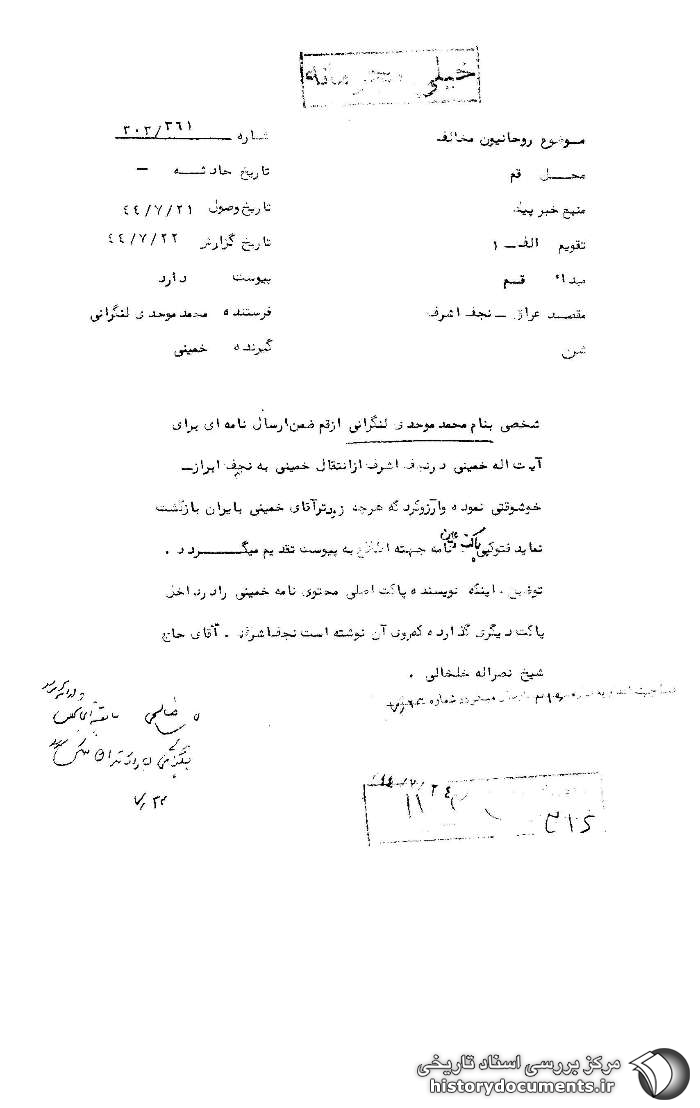 خیلی محرمانه
موضوع روحانیون مخالف
شماره ۳۰۳/۳۶۱
محل قم
تاریخ حادثه –
منبع خبر
تاریخ وصول ۴۴/۷/۲۱
تقویم الف – ۱
تاریخ گزارش ۴۴/۷/۲۲
مبداء قم
پیوست دارد
مقصد عراق – نجف اشرف
فرستنده محمد موحدی لنگرانی
گیرنده خمینی
شخصی بنام محمد موحدی لنگرانی ازقم ضمن ارسال نامه ای برای
آیت اله خمینی درنجف اشرف ازانتقال خمینی به نجف ابراز–
خوشوقتی نموده وآرزوکرد که هرچه زودترآقای خمینی بایران بازگشت
نماید فتوکپی پاکت و نامه جهته اطلاع به پیوست تقدیم میگردد .
توضیح اینکه نویسنده پاکت اصلی محتوی نامه خمینی رادرداخل
پاکت دیگری گذارده که روی آن نوشته است نجف اشرف . آقای حاج
شیخ نصراله خلخالی .
۷/۲۴
۴۴/۷/۲۴
۳۱۶
مرکز بررسی اسناد تاریخی
historydocuments.ir